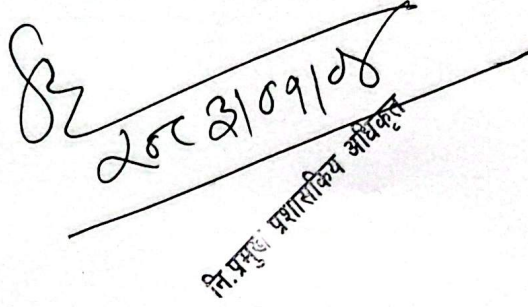 २०८३।०१।०४
नि.प्रमुख प्रशासकिय अधिकृत